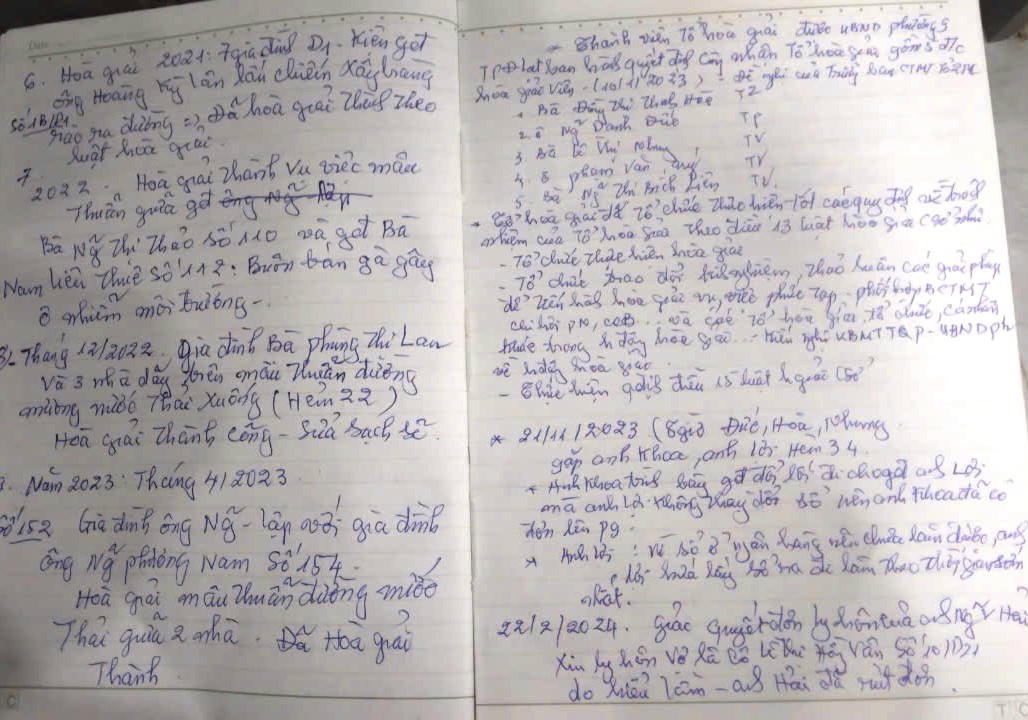 6. Hoà giải 2021: 7 gia đình D1 - Kiên gđt
ông Hoàng Kỳ Lân lấn chiến Xây trang
Số 1B/D1
rào ra đường => Đã hoà giải thành theo
luật hoà giải.
7.
2022. Hoà giải thành vụ việc mâu
Thuẫn giữa gđ ông Ng~ lập
Bà Ng~ Thị Thảo số 110 và gđt Bà
Nam liên Thuê số 112: Buôn bán gà gây
ô nhiễm môi trường -.
8/- Tháng 12/2022. Gia đình Bà phùng Thị Lan
Và 3 nhà dãy trên mâu thuẫn đường
mương nước Thải Xuống (Hẻm 22)
Hoà giải Thành công - Sửa sạch sẽ.
Năm 2023: Tháng 4/2023
Số 152 Gia đình ông Ng~ - lập với gia đình
ông Ng~ phương Nam Số 154.
Hoà giải mâu thuẫn đường nước
Thải giữa 2 nhà. Đã Hoà giải
Thành.
Thành viên Tổ hoà giải được UBND phường 9
TP Đ lạt ban hành quyết định công nhận Tổ hoà giải gồm 5 đ/c
hòa giải viên - (10/11/2023) - Đề nghị của Trưởng ban CTMT
1. Bà Đặng Thị Thanh Hoà TT
2. ô Ng~ Danh Đức TP
3. Bà Lê Thị Nhung TV
4. ô phạm Văn quý TV
5. Bà Ng~ Thị Bích Liên TV.
* Tổ hoà giải đã Tổ chức thực hiện tốt các quy định về trách
nhiệm của Tổ hoà giải theo điều 13 luật hòa giải cơ sở như:
- Tổ chức thực hiện hòa giải
- Tổ chức trao đổi kinh nghiệm, thảo luận các giải pháp
để tiến hành hòa giải vụ, việc phức tạp - phối hợp BCTMT
chi hội PN, CCB... và các Tổ hòa giải tổ chức, cá nhân
khác trong h động hòa giải... - Kiến nghị UBMTTQP - UBND ph
về h động hoà giải
- Thực hiện q định điều 15 luật h giải
* 21/11/2023 (8 giờ Đức, Hoà, Nhung
gặp anh Khoa, anh Lợi Hẻm 34.
* Anh Khoa trình bày gđ đổi lối đi cho gđ anh Lợi
mà anh Lợi không thay đổi sổ nên anh Khoa đã có
đơn lên P9.
* Anh Lợi: Vì sổ ở ngân hàng nên chưa làm được, anh
Lợi hứa lấy sổ ra đi làm theo thời gian sớm
nhất.
22/2/2024. Giải quyết đơn ly hôn của anh Ng~ V Hải
Xin ly hôn Vợ là cô Lê Thị Hồng Vân Số 10/D21
do hiểu lầm - anh Hải đã rút đơn.